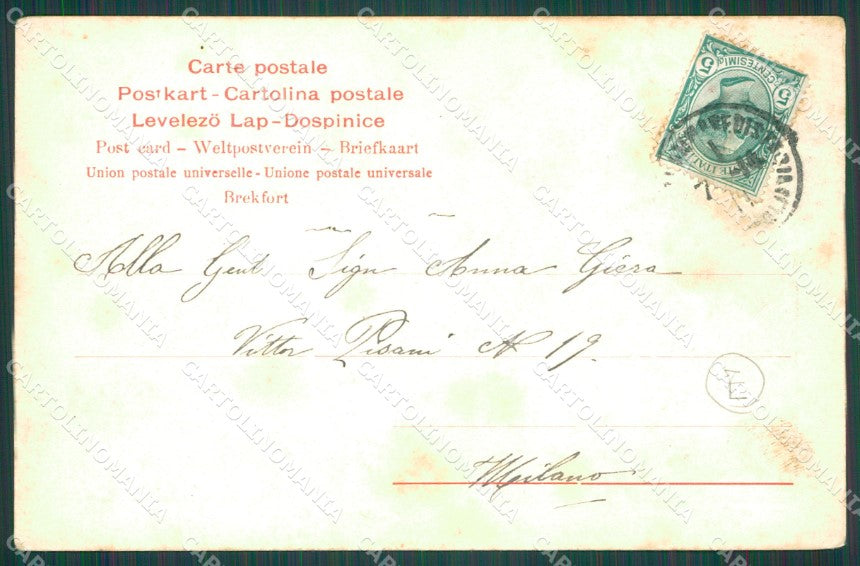 Carte postale
Postkart - Cartolina postale
Levelezö Lap - Dospinice
Post card – Weltpostverein – Briefkaart
Union postale universelle - Unione postale universale
Brekfort
5 CENTESIMI 5
Alla Gent Sign Anna Giera
Vittor Pisani N 19.
Milano
CARTOLINOMANIA